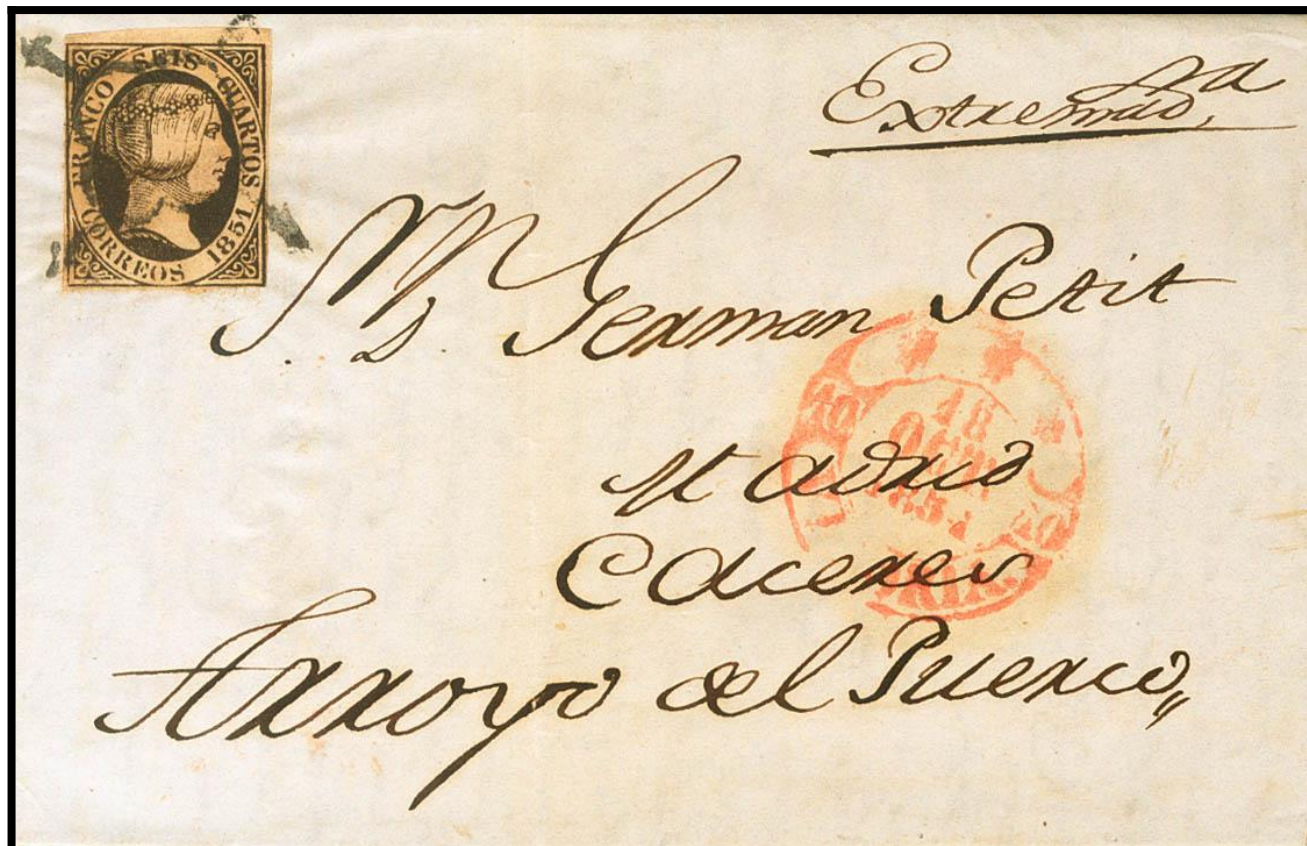 FRANCO SEIS CUARTOS
CORREOS 1851
Extremad.ra
Sr. D. German Petit
Madrid
Caceres
Arroyo del Puerco,,
18